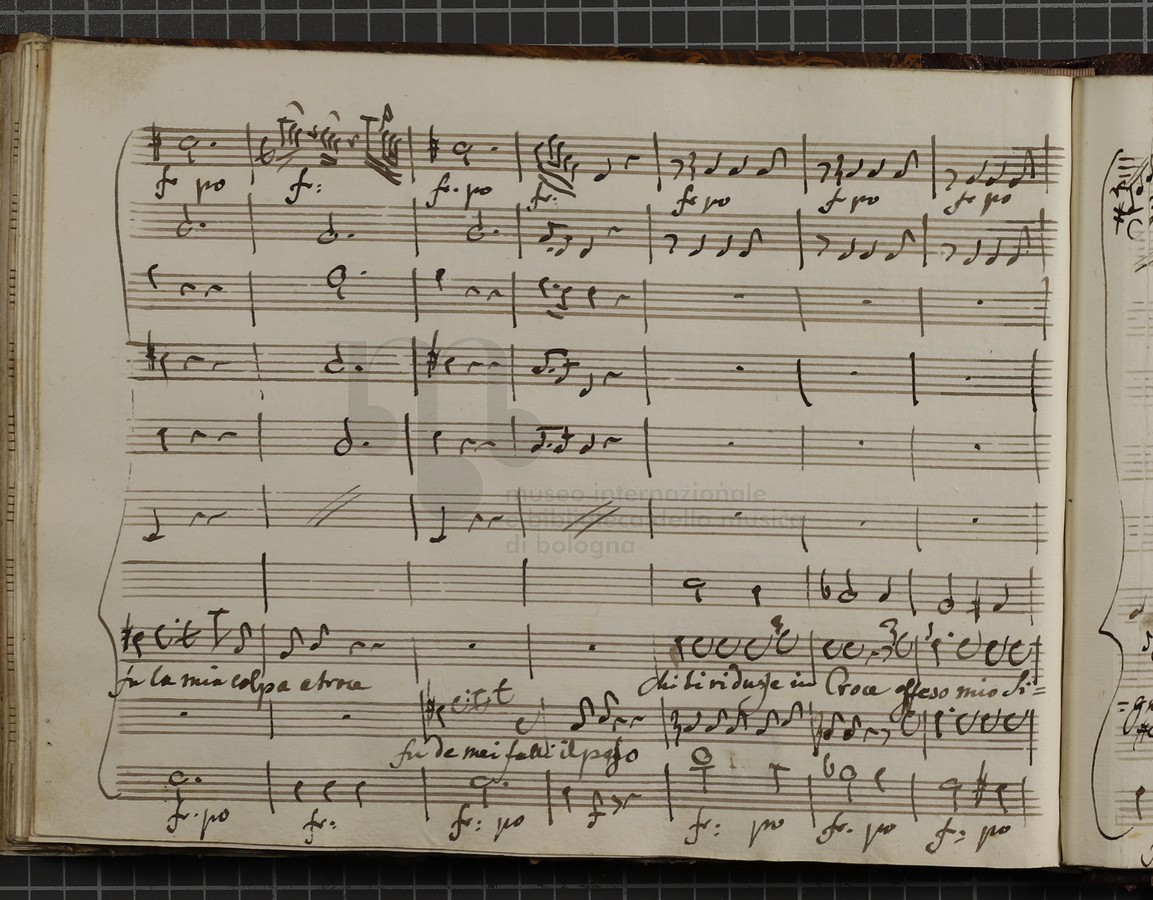 f: po f: f: po f: f: po f: po f: po
museo internazionale
e biblioteca della musica
di bologna
fu la mia colpa atroce
chi ti ridusse in Croce offeso mio Si=
fu de miei falli il peso
f: po f: f: po f: po f: po f: po